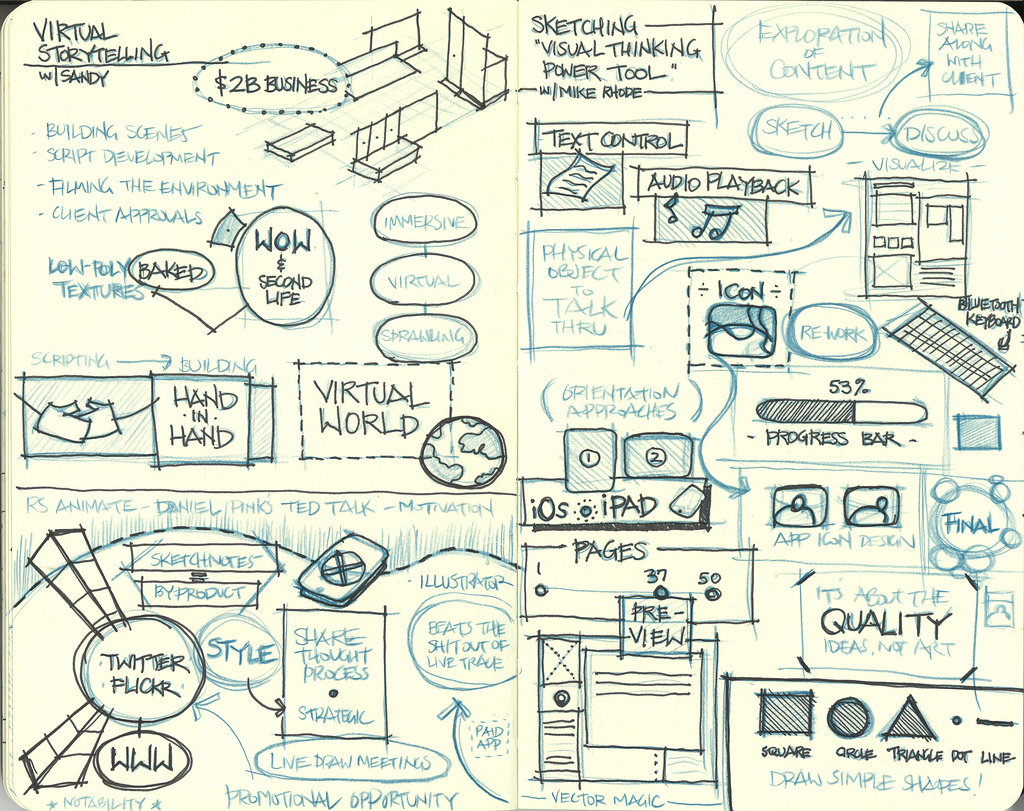 VIRTUAL
STORYTELLING
W/SANDY
$2B BUSINESS
- BUILDING SCENES
- SCRIPT DEVELOPMENT
- FILMING THE ENVIRONMENT
- CLIENT APPROVALS
LOW-POLY
TEXTURES
BAKED
WOW
&
SECOND
LIFE
IMMERSIVE
VIRTUAL
SPRAWLING
SCRIPTING
BUILDING
HAND
IN
HAND
VIRTUAL
WORLD
RS ANIMATE - DANIEL PINK'S TED TALK - MOTIVATION
SKETCHNOTES
=
BY-PRODUCT
TWITTER
FLICKR
WWW
STYLE
SHARE
THOUGHT
PROCESS
•
STRATEGIC
ILLUSTRATOR
BEATS THE
SHIT OUT OF
LIVE TRACE
PAID
APP
LIVE DRAW MEETINGS
★ NOTABILITY ★
PROMOTIONAL OPPORTUNITY
SKETCHING
"VISUAL THINKING
POWER TOOL"
W/MIKE RHODE
EXPLORATION
OF
CONTENT
SHARE
ALONG
WITH
CLIENT
SKETCH
DISCUSS
- VISUALIZE -
TEXT CONTROL
AUDIO PLAYBACK
PHYSICAL
OBJECT
TO
TALK
THRU
÷ ICON ÷
RE-WORK
BLUETOOTH
KEYBOARD
(ORIENTATION
APPROACHES)
1
2
53%
- PROGRESS BAR -
iOS iPAD
APP ICON DESIGN
FINAL
PAGES
1
37
50
PRE-
VIEW
IT'S ABOUT THE
QUALITY
IDEAS, NOT ART
SQUARE CIRCLE TRIANGLE DOT LINE
DRAW SIMPLE SHAPES!
- VECTOR MAGIC -